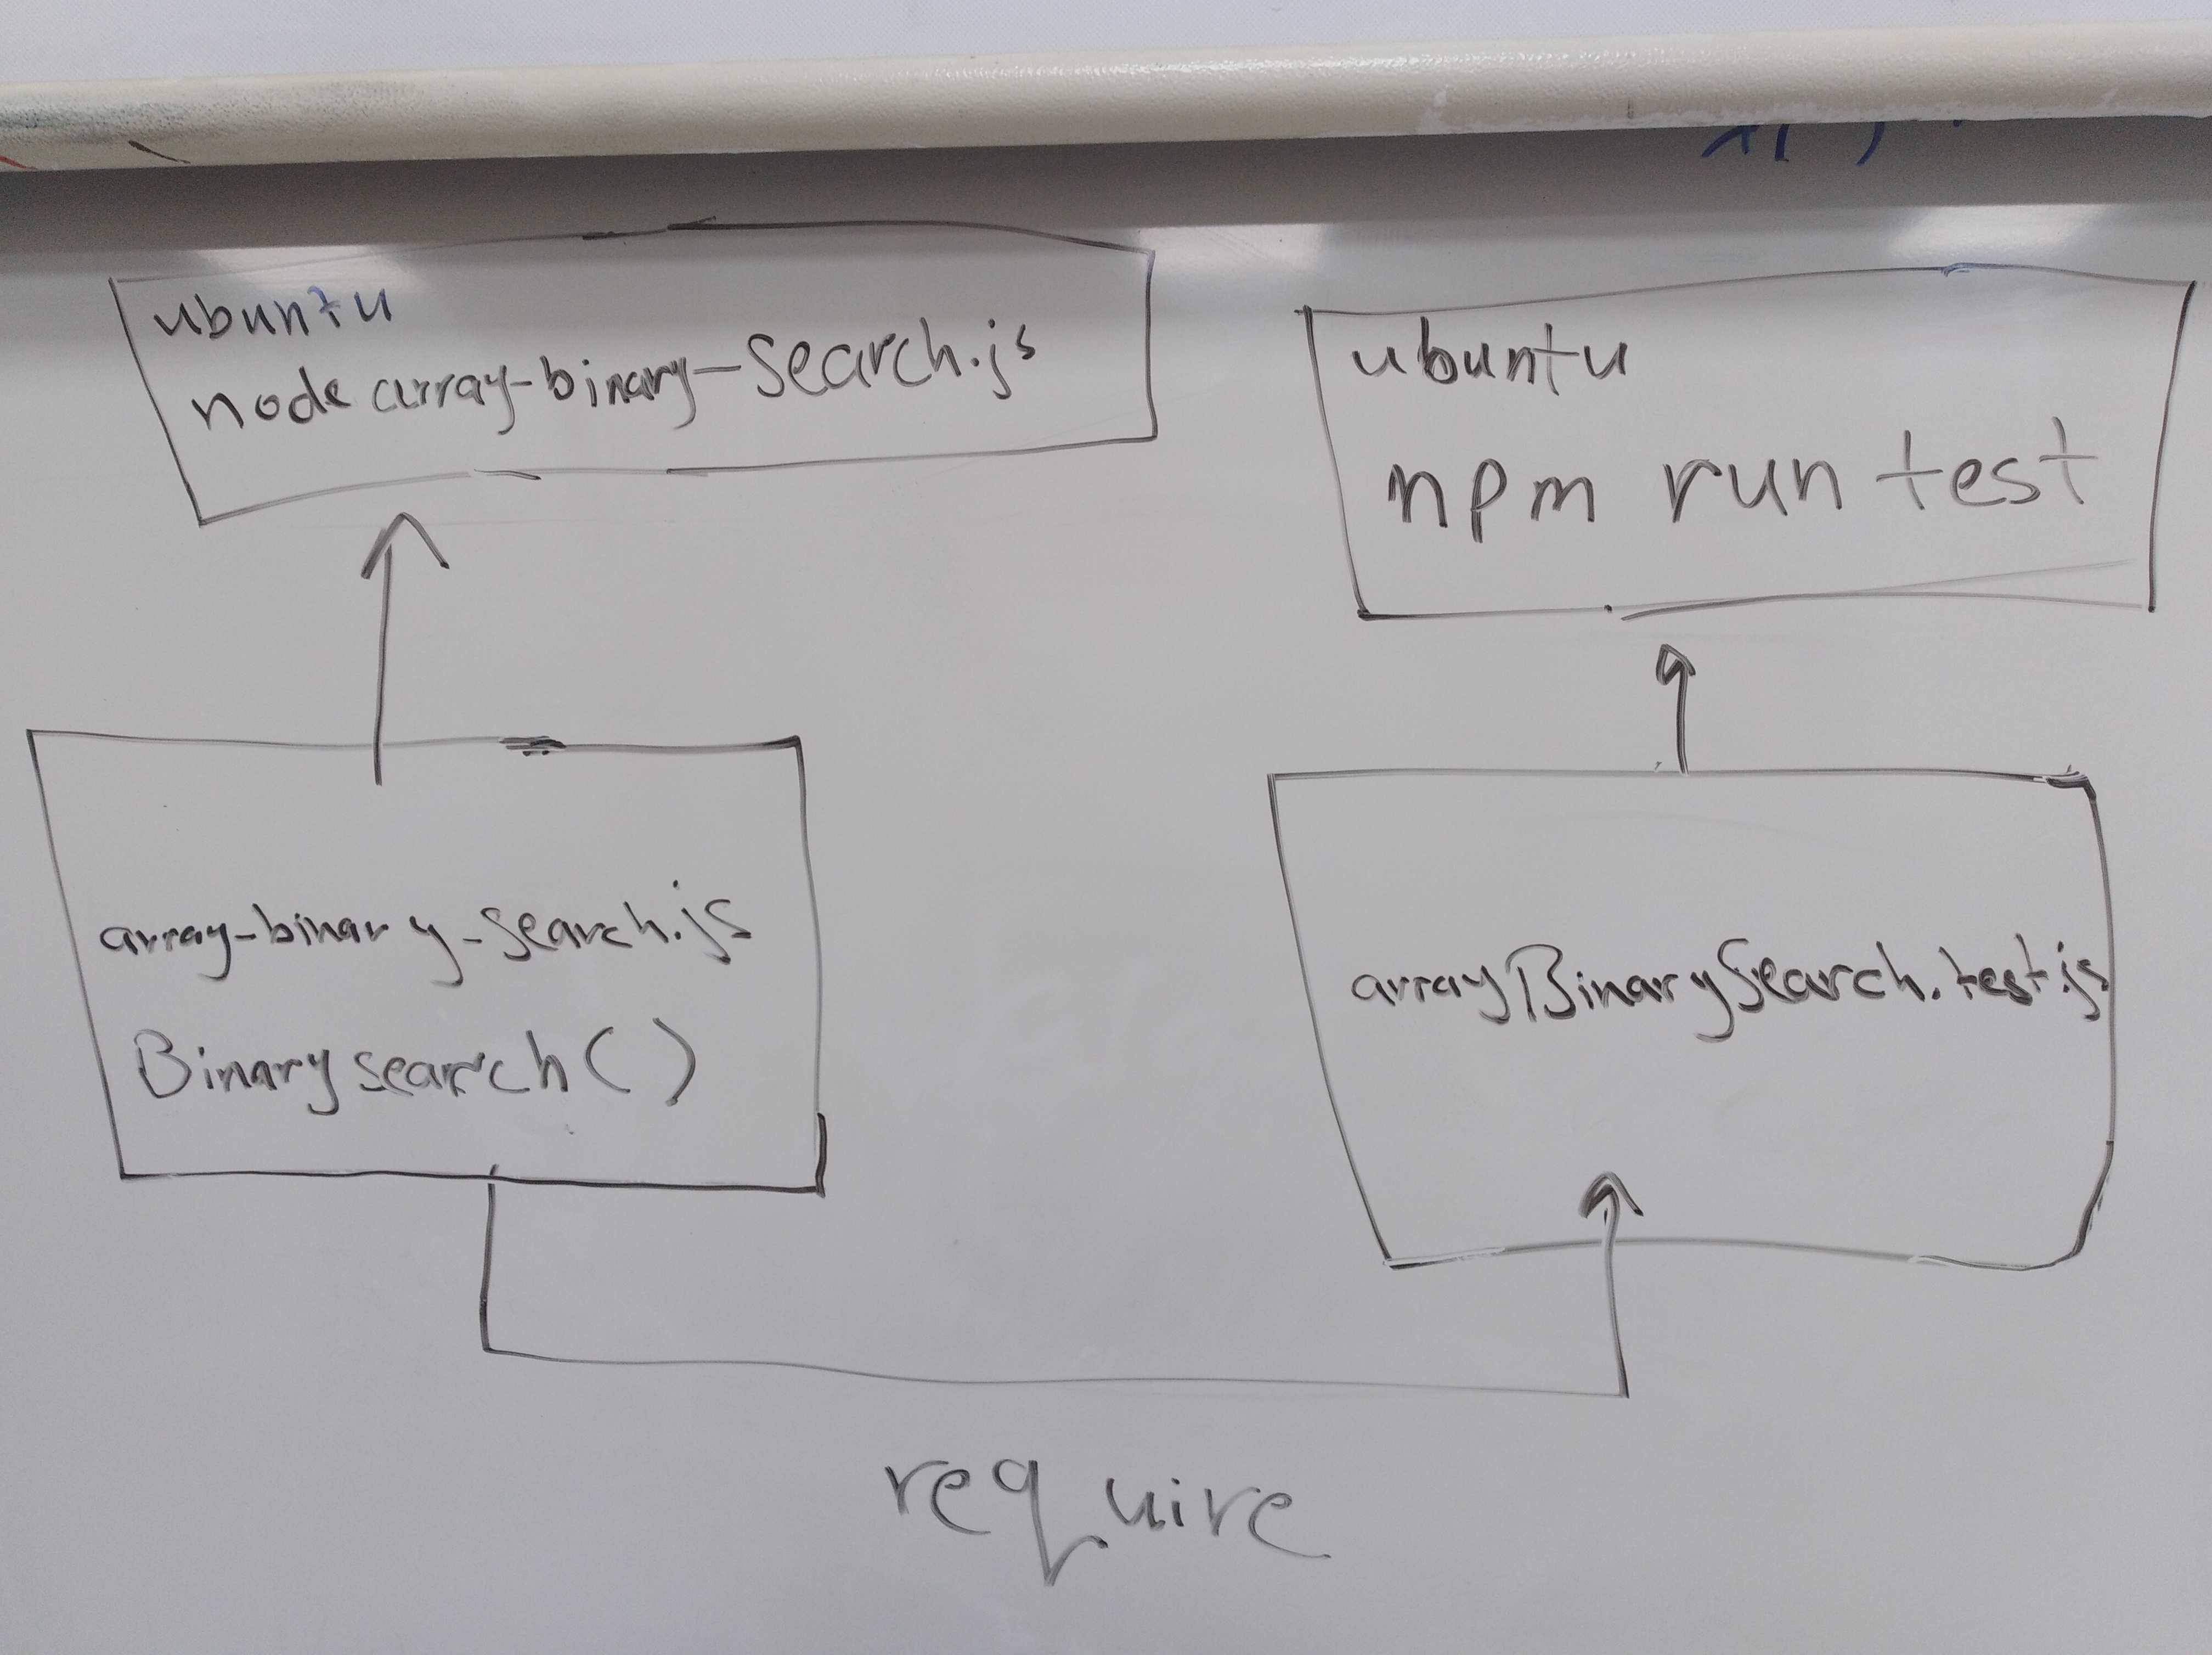 ubuntu
node array-binary-search.js
ubuntu
npm run test
array-binary-search.js
Binarysearch()
arrayBinarySearch.test.js
require